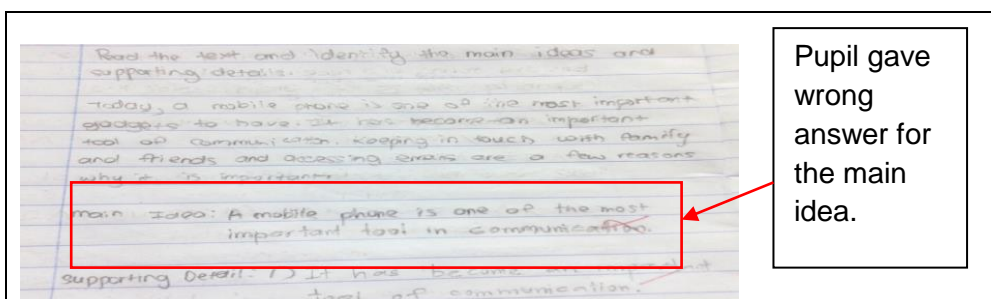 Read the text and identify the main ideas and
supporting details.
Today, a mobile phone is one of the most important
gadgets to have. It has become an important
tool of communication. Keeping in touch with family
and friends and accessing emails are a few reasons
why it is important.
main Idea: A mobile phone is one of the most
important tool in communication.
supporting Detail: 1) It has become an important
tool of communication.
Pupil gave
wrong
answer for
the main
idea.